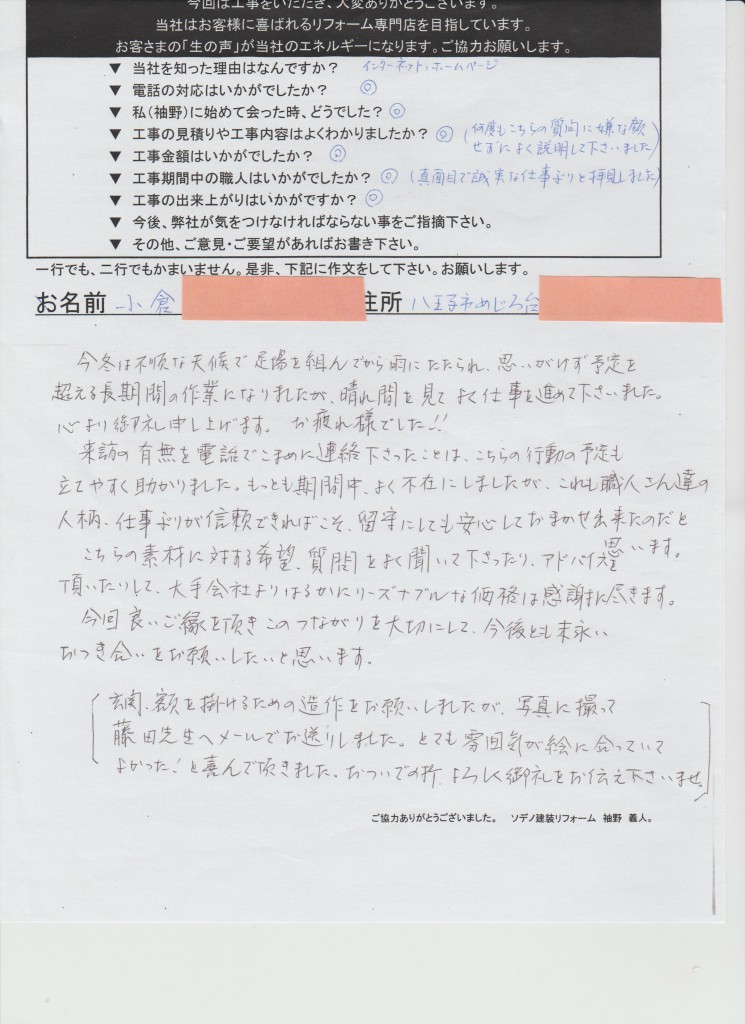 今回は工事をいただき、大変ありがとうございます。
当社はお客様に喜ばれるリフォーム専門店を目指しています。
お客さまの「生の声」が当社のエネルギーになります。ご協力お願いします。
▼ 当社を知った理由はなんですか？ インターネット、ホームページ
▼ 電話の対応はいかがでしたか？ ◎
▼ 私(袖野)に始めて会った時、どうでした？ ◎
▼ 工事の見積りや工事内容はよくわかりましたか？ ◎ (何度もこちらの質問に嫌な顔
せずによく説明して下さいました)
▼ 工事金額はいかがでしたか？ ◎
▼ 工事期間中の職人はいかがでしたか？ ◎ (真面目で誠実な仕事ぶりと拝見しました)
▼ 工事の出来上がりはいかがですか？ ◎
▼ 今後、弊社が気をつけなければならない事をご指摘下さい。
▼ その他、ご意見・ご要望があればお書き下さい。
一行でも、二行でもかまいません。是非、下記に作文をして下さい。お願いします。
お名前 小倉 住所 八王子市めじろ台
今冬は不順な天候で足場を組んでから雨にたたられ、思いがけず予定を
超える長期間の作業になりましたが、晴れ間を見てよく仕事を進めて下さいました。
心より御礼申し上げます。 お疲れ様でした!!
来訪の有無を電話でこまめに連絡下さったことは、こちらの行動の予定も
立てやすく助かりました。もっとも期間中、よく不在にしましたが、これも職人さん達の
人柄、仕事ぶりが信頼できればこそ、留守にしても安心しておまかせ出来たのだと
思います。
こちらの素材に対する希望、質問をよく聞いて下さったり、アドバイスを
頂いたりして、大手会社よりはるかにリーズナブルな価格は感謝に尽きます。
今回良いご縁を頂きこのつながりを大切にして、今後とも末永い
おつき合いをお願いしたいと思います。
玄関、額を掛けるための造作をお願いしましたが、写真に撮って
藤田先生へメールでお送りしました。とても雰囲気が絵に合っていて
よかった！と喜んで頂きました。おついでの折、よろしく御礼をお伝え下さいませ。
ご協力ありがとうございました。 ソデノ建装リフォーム 袖野 義人。